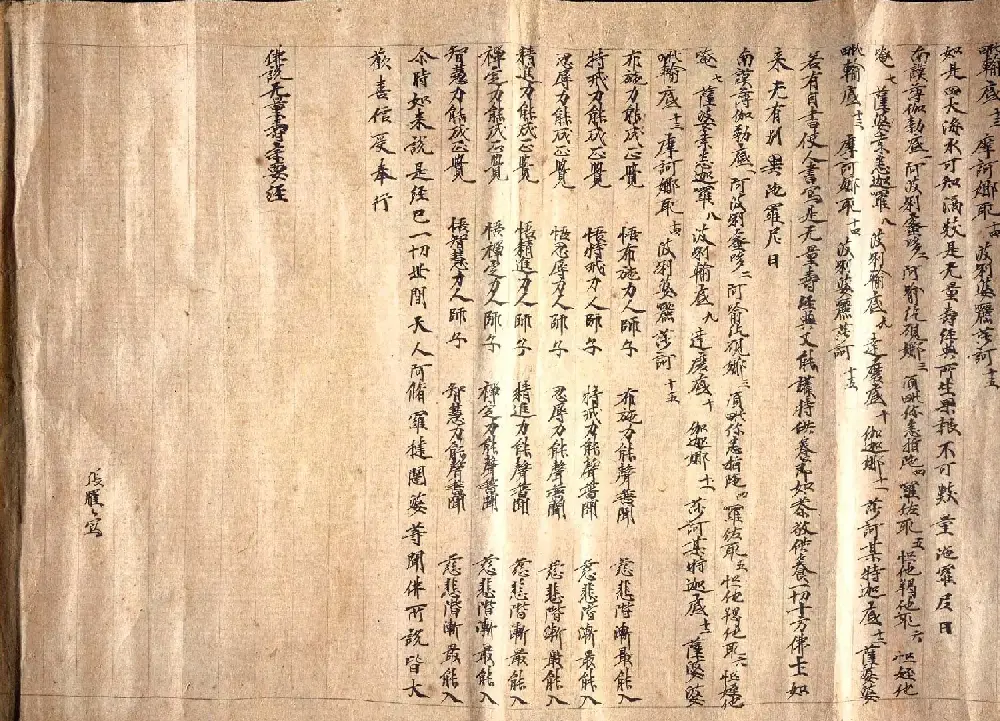 毗輸底十三 摩訶娜取十四 波唎婆羅莎訶十五
如是四大海水可知滴数是无量壽經典所生果報不可數量 陁羅尼曰
南謨薄伽勃底一 阿波唎蜜哆二 阿喻紇硯娜三 須毗你悉指陁四 羅佐取五 怛他羯他取六 怛姪他
唵七 薩婆桑悉迦羅八 波唎輸底九 達磨底十 伽迦娜十一 莎訶某特迦底十二 薩婆婆
毗輸底十三 摩訶娜取十四 波唎婆羅莎訶十五
若有自書使人書寫是无量壽經典又能護持供養即如恭敬供養一切十方佛土如
来无有別異陁羅尼曰
南謨薄伽勃底一 阿波唎蜜哆二 阿喻紇硯娜三 須毗你悉指陁四 羅佐取五 怛他羯他取六 怛姪他
唵七 薩婆桑悉迦羅八 波唎輸底九 達磨底十 伽迦娜十一 莎訶某特迦底十二 薩婆婆
毗輸底十三 摩訶娜取十四 波唎婆羅莎訶十五
布施力能成正覺 悟布施力人師子 布施力能聲普聞 慈悲階漸最能入
持戒力能成正覺 悟持戒力人師子 持戒力能聲普聞 慈悲階漸最能入
忍辱力能成正覺 悟忍辱力人師子 忍辱力能聲普聞 慈悲階漸最能入
精進力能成正覺 悟精進力人師子 精進力能聲普聞 慈悲階漸最能入
禪定力能成正覺 悟禪定力人師子 禪定力能聲普聞 慈悲階漸最能入
智慧力能成正覺 悟智慧力人師子 智慧力能聲普聞 慈悲階漸最能入
尒時如来說是經已一切世間天人阿脩羅揵闥婆等聞佛所說皆大
歡喜信受奉行
佛說无量壽宗要經
張 寫